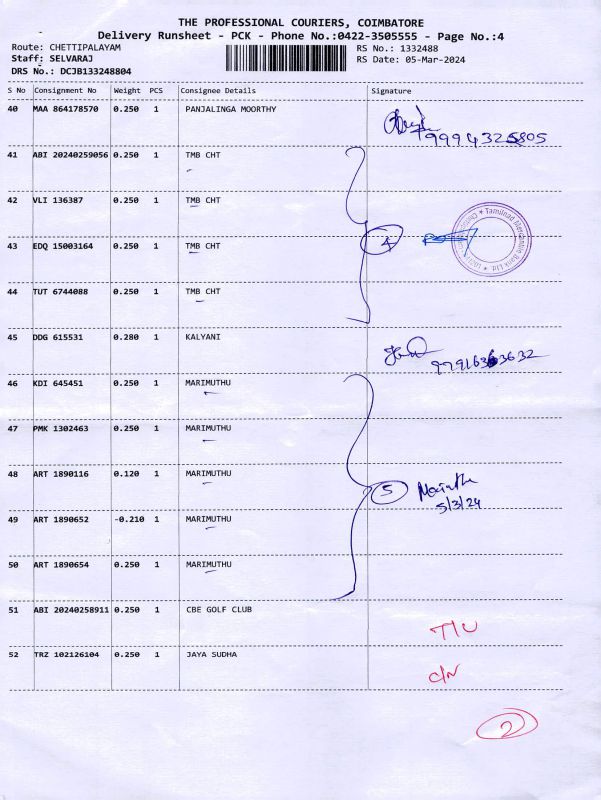 THE PROFESSIONAL COURIERS, COIMBATORE
Delivery Runsheet - PCK - Phone No.:0422-3505555 - Page No.:4
Route: CHETTIPALAYAM RS No.: 1332488
Staff: SELVARAJ RS Date: 05-Mar-2024
DRS No.: DCJB133248804
S No Consignment No Weight PCS Consignee Details Signature
40 MAA 864178570 0.250 1 PANJALINGA MOORTHY
9994325805
41 ABI 20240259056 0.250 1 TMB CHT
42 VLI 136387 0.250 1 TMB CHT
43 EDQ 15003164 0.250 1 TMB CHT 4
Tamilnad Mercantile Bank Ltd
44 TUT 6744088 0.250 1 TMB CHT
45 DDG 615531 0.280 1 KALYANI
97916363632
46 KDI 645451 0.250 1 MARIMUTHU
47 PMK 1302463 0.250 1 MARIMUTHU
48 ART 1890116 0.120 1 MARIMUTHU 5
5/3/24
49 ART 1890652 -0.210 1 MARIMUTHU
50 ART 1890654 0.250 1 MARIMUTHU
51 ABI 20240258911 0.250 1 CBE GOLF CLUB
T/U
52 TRZ 102126104 0.250 1 JAYA SUDHA
C/N
2